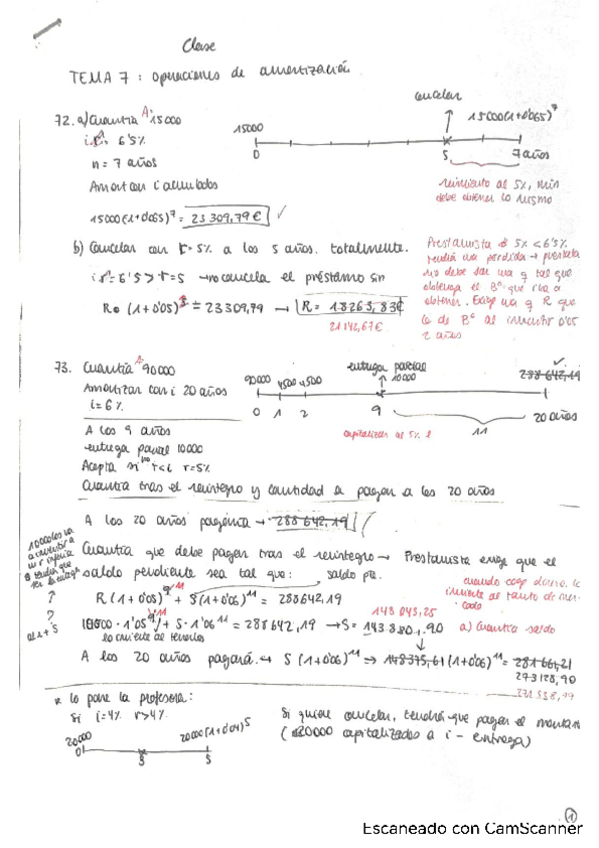 Clase
TEMA 7: Operaciones de amortización
72. a) Cuantía A: 15000
i = 6'5%
n = 7 años
Amortan i acumulados
15000(1+0'065)^7 = 23309,79€ ✓
cancelar
15000 15000(1+0'065)^7
0 5 7 años
reinvimiento al 5%, min
debe obtener lo mismo
b) Cancelar con r = 5% a los 5 años. totalmente.
i = 6'5 > r = 5 → no cancela el préstamo sin
R• (1+0'05)^2 = 23309,79 → R = 18263,83€
21142,67€
Prestamista 5% < 6'5%
tendrá una perdida → prestata
rio debe dar una q tal que
obtenga el Bº que iba a
obtener. Exige una q R que
le de Bº al invertir 0'05
2 años
73. Cuantía A: 90000
Amortizar con i 20 años
i = 6%
entrega parcial
90000 4500 4500 10000 288 642,19
0 1 2 9 11 20 años
capitalizar al 5%
A los 9 años
entrega parcial 10000
Acepta si r<i r=5%
Cuantía tras el reintegro y cantidad a pagar a los 20 años
A los 20 años pagaría → 288 642,19
Cuantía que debe pagar tras el reintegro → Prestamista exige que el
saldo pendiente sea tal que: saldo pte.
R(1+0'05)^11 + S(1+0'06)^11 = 288642,19
cuando coge dinero, lo
invierte al tanto de mer-
cado
10000 · 1'05^11 + S · 1'06^11 = 288642,19 → S = 143880,90 a) Cuantía saldo
lo invierte al tenerlos
A los 20 años pagará → S(1+0'06)^11 ⇒ 148375,61(1+0'06)^11 = 281661,21
273128,90
* lo pone la profesora:
Si i=4% r>4%.
20000 20000(1+0'04)^5
0 3 5
Si quiere cancelar, tendrá que pagar el montan
(20000 capitalizados a i - entrega)
1
Escaneado con CamScanner